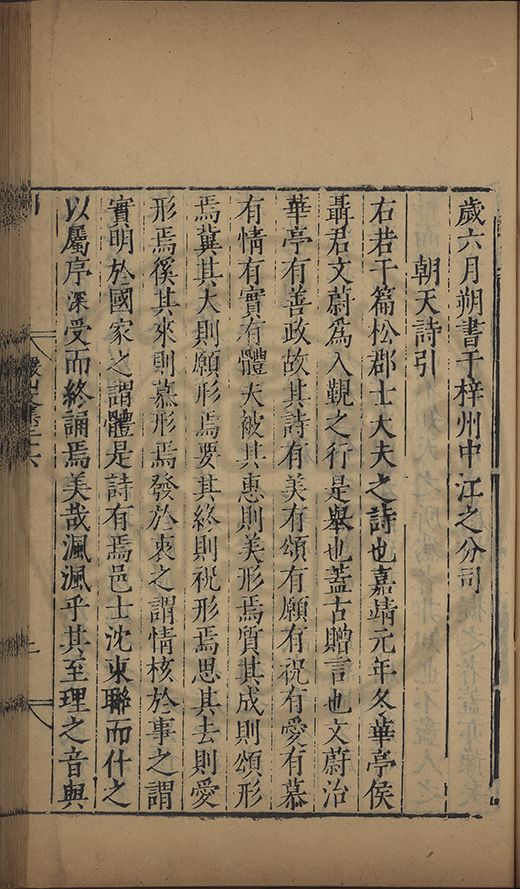 歲六月朔書于梓州中江之分司
朝天詩引
右若干篇松郡士大夫之詩也嘉靖元年冬華亭侯
聶君文蔚爲入覲之行是舉也蓋古贈言也文蔚治
華亭有善政故其詩有美有頌有願有祝有愛有慕
有情有實有體夫被其惠則美形焉質其成則頌形
焉冀其大則願形焉要其終則祝形焉思其去則愛
形焉徯其來則慕形焉發於衷之謂情核於事之謂
實明於國家之謂體是詩有焉邑士沈東聯而什之
以屬序深受而終誦焉美哉渢渢乎其至理之音與